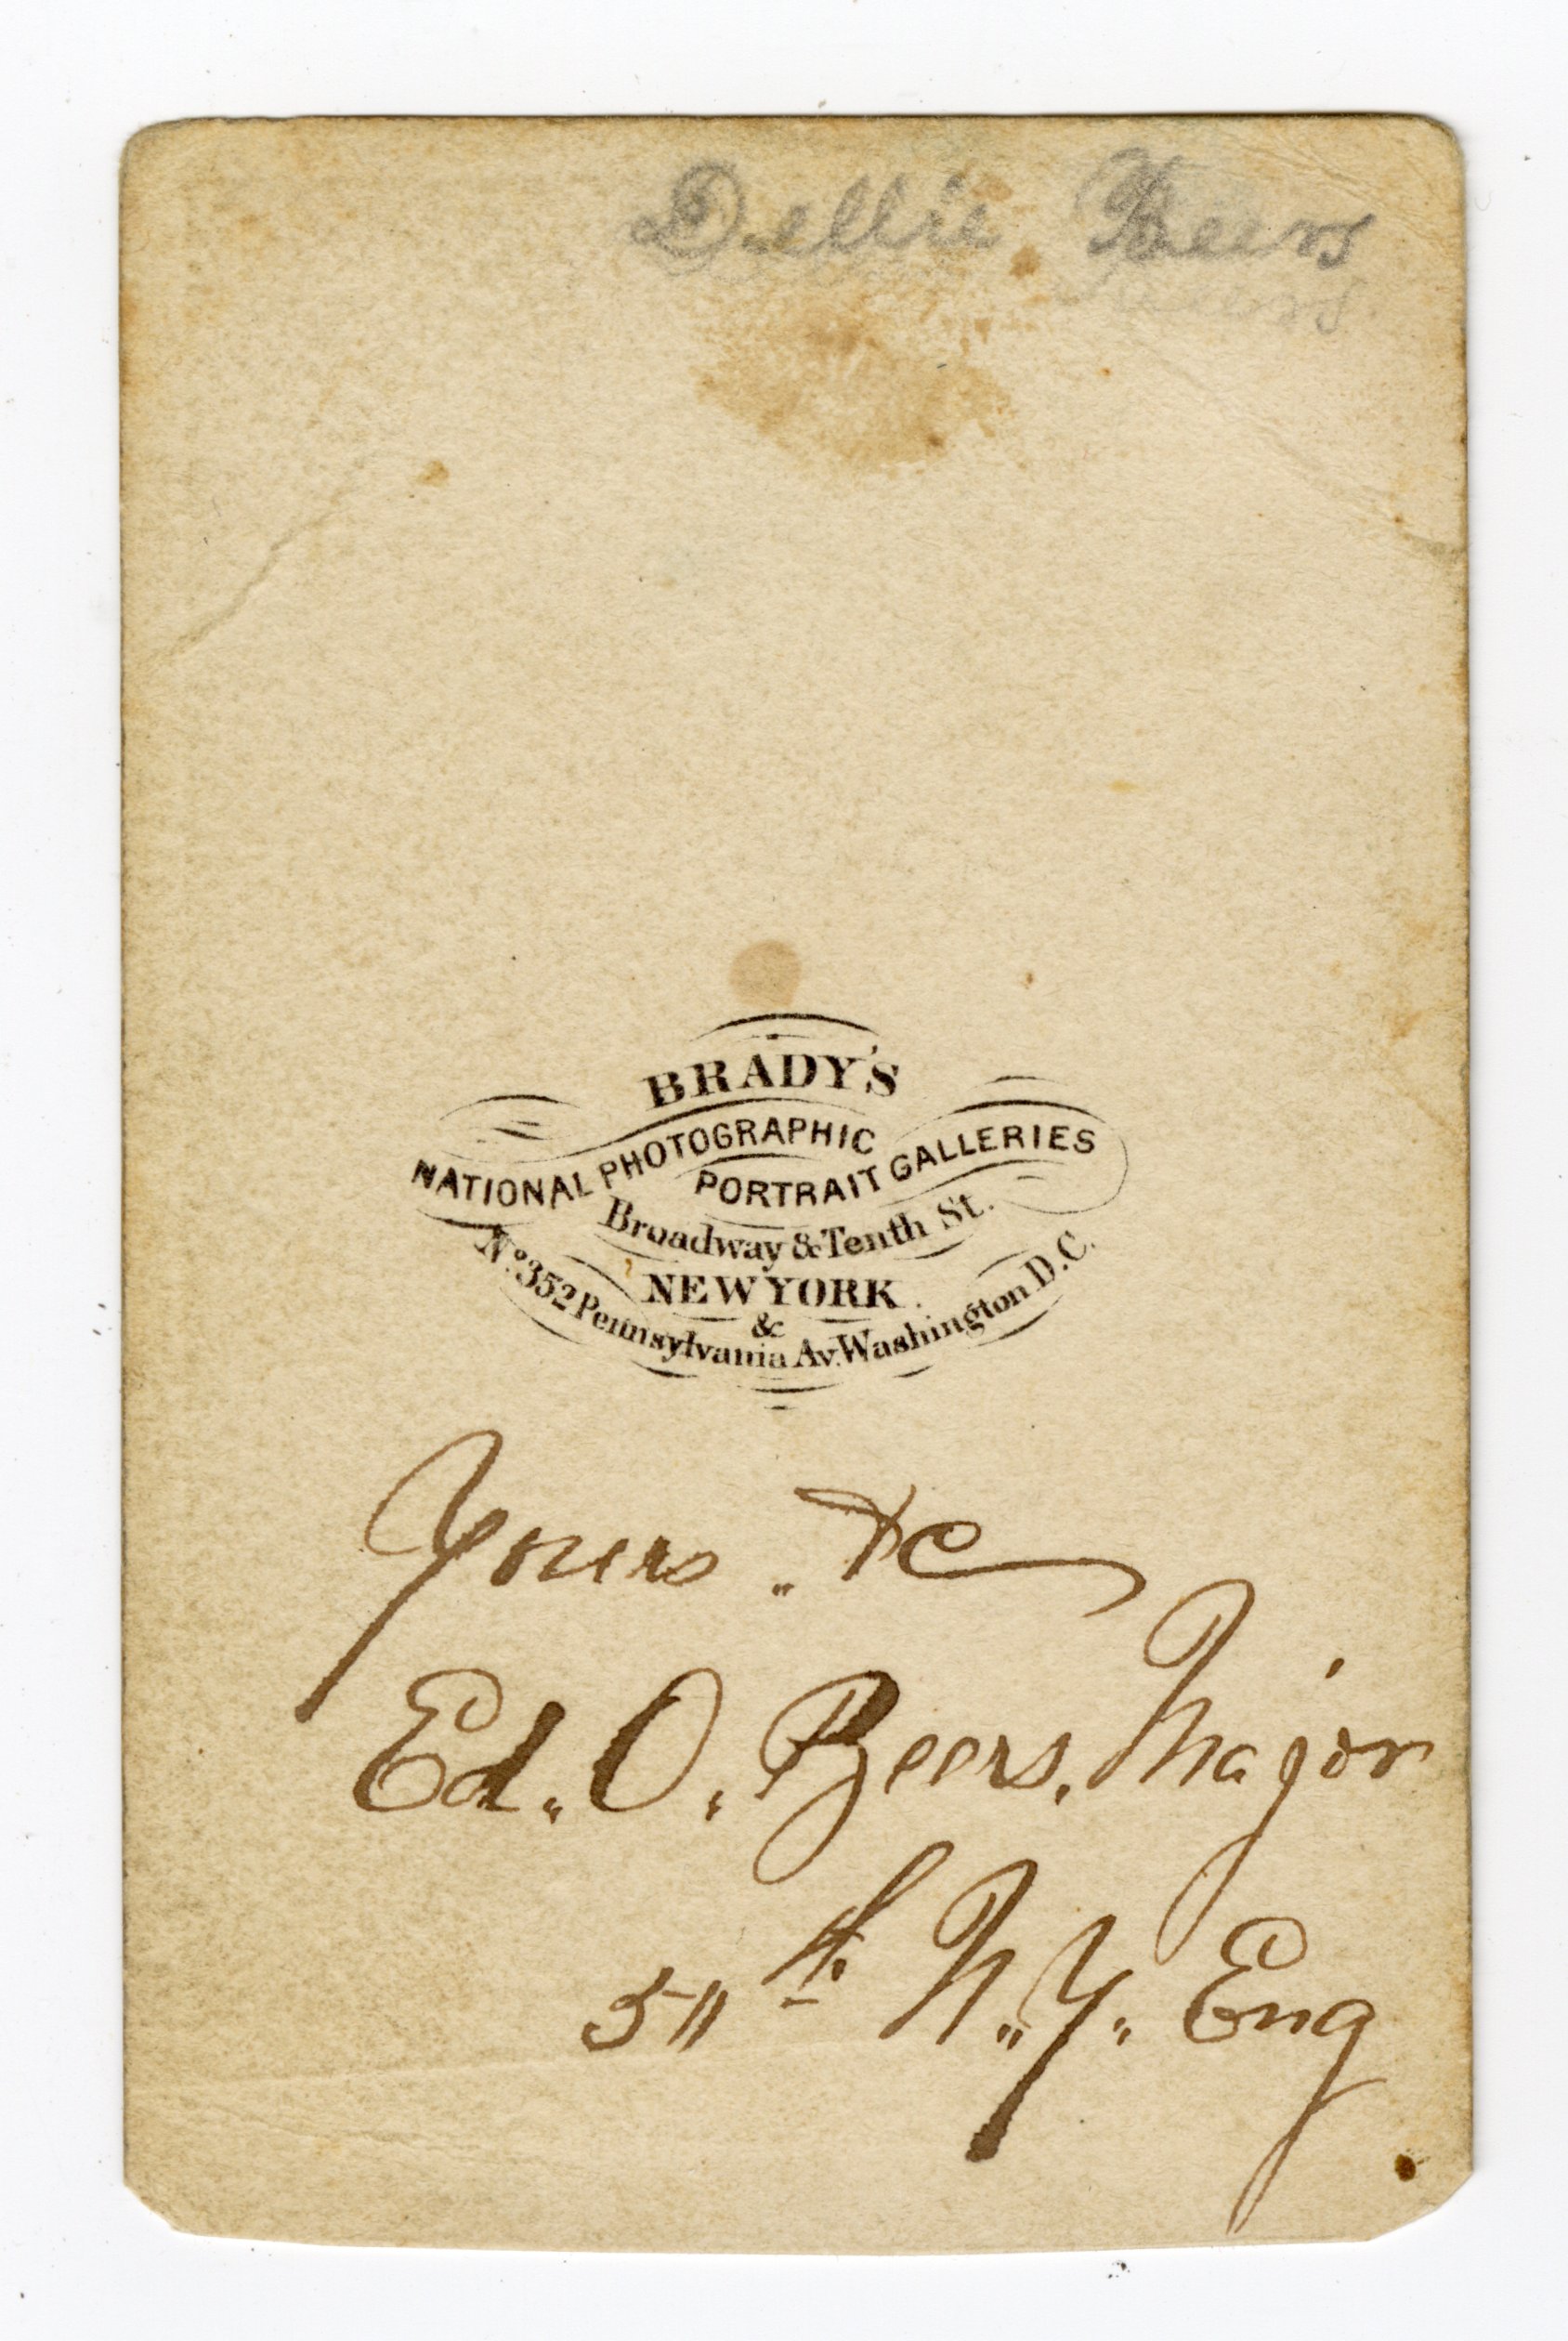 Dellie Beers
BRADY'S
NATIONAL PHOTOGRAPHIC
PORTRAIT GALLERIES
Broadway & Tenth St.
NEW YORK
&
No. 352 Pennsylvania Av. Washington D.C.
Yours &c
Ed. O. Beers, Major
50th N.Y. Eng